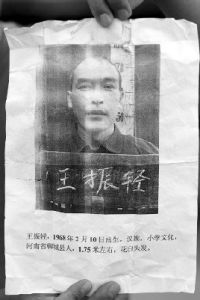 王振轻
王振轻，1968 年 2 月 10 日出生，汉族，小学文化，
河南省郸城县人，1.75 米左右，花白头发。